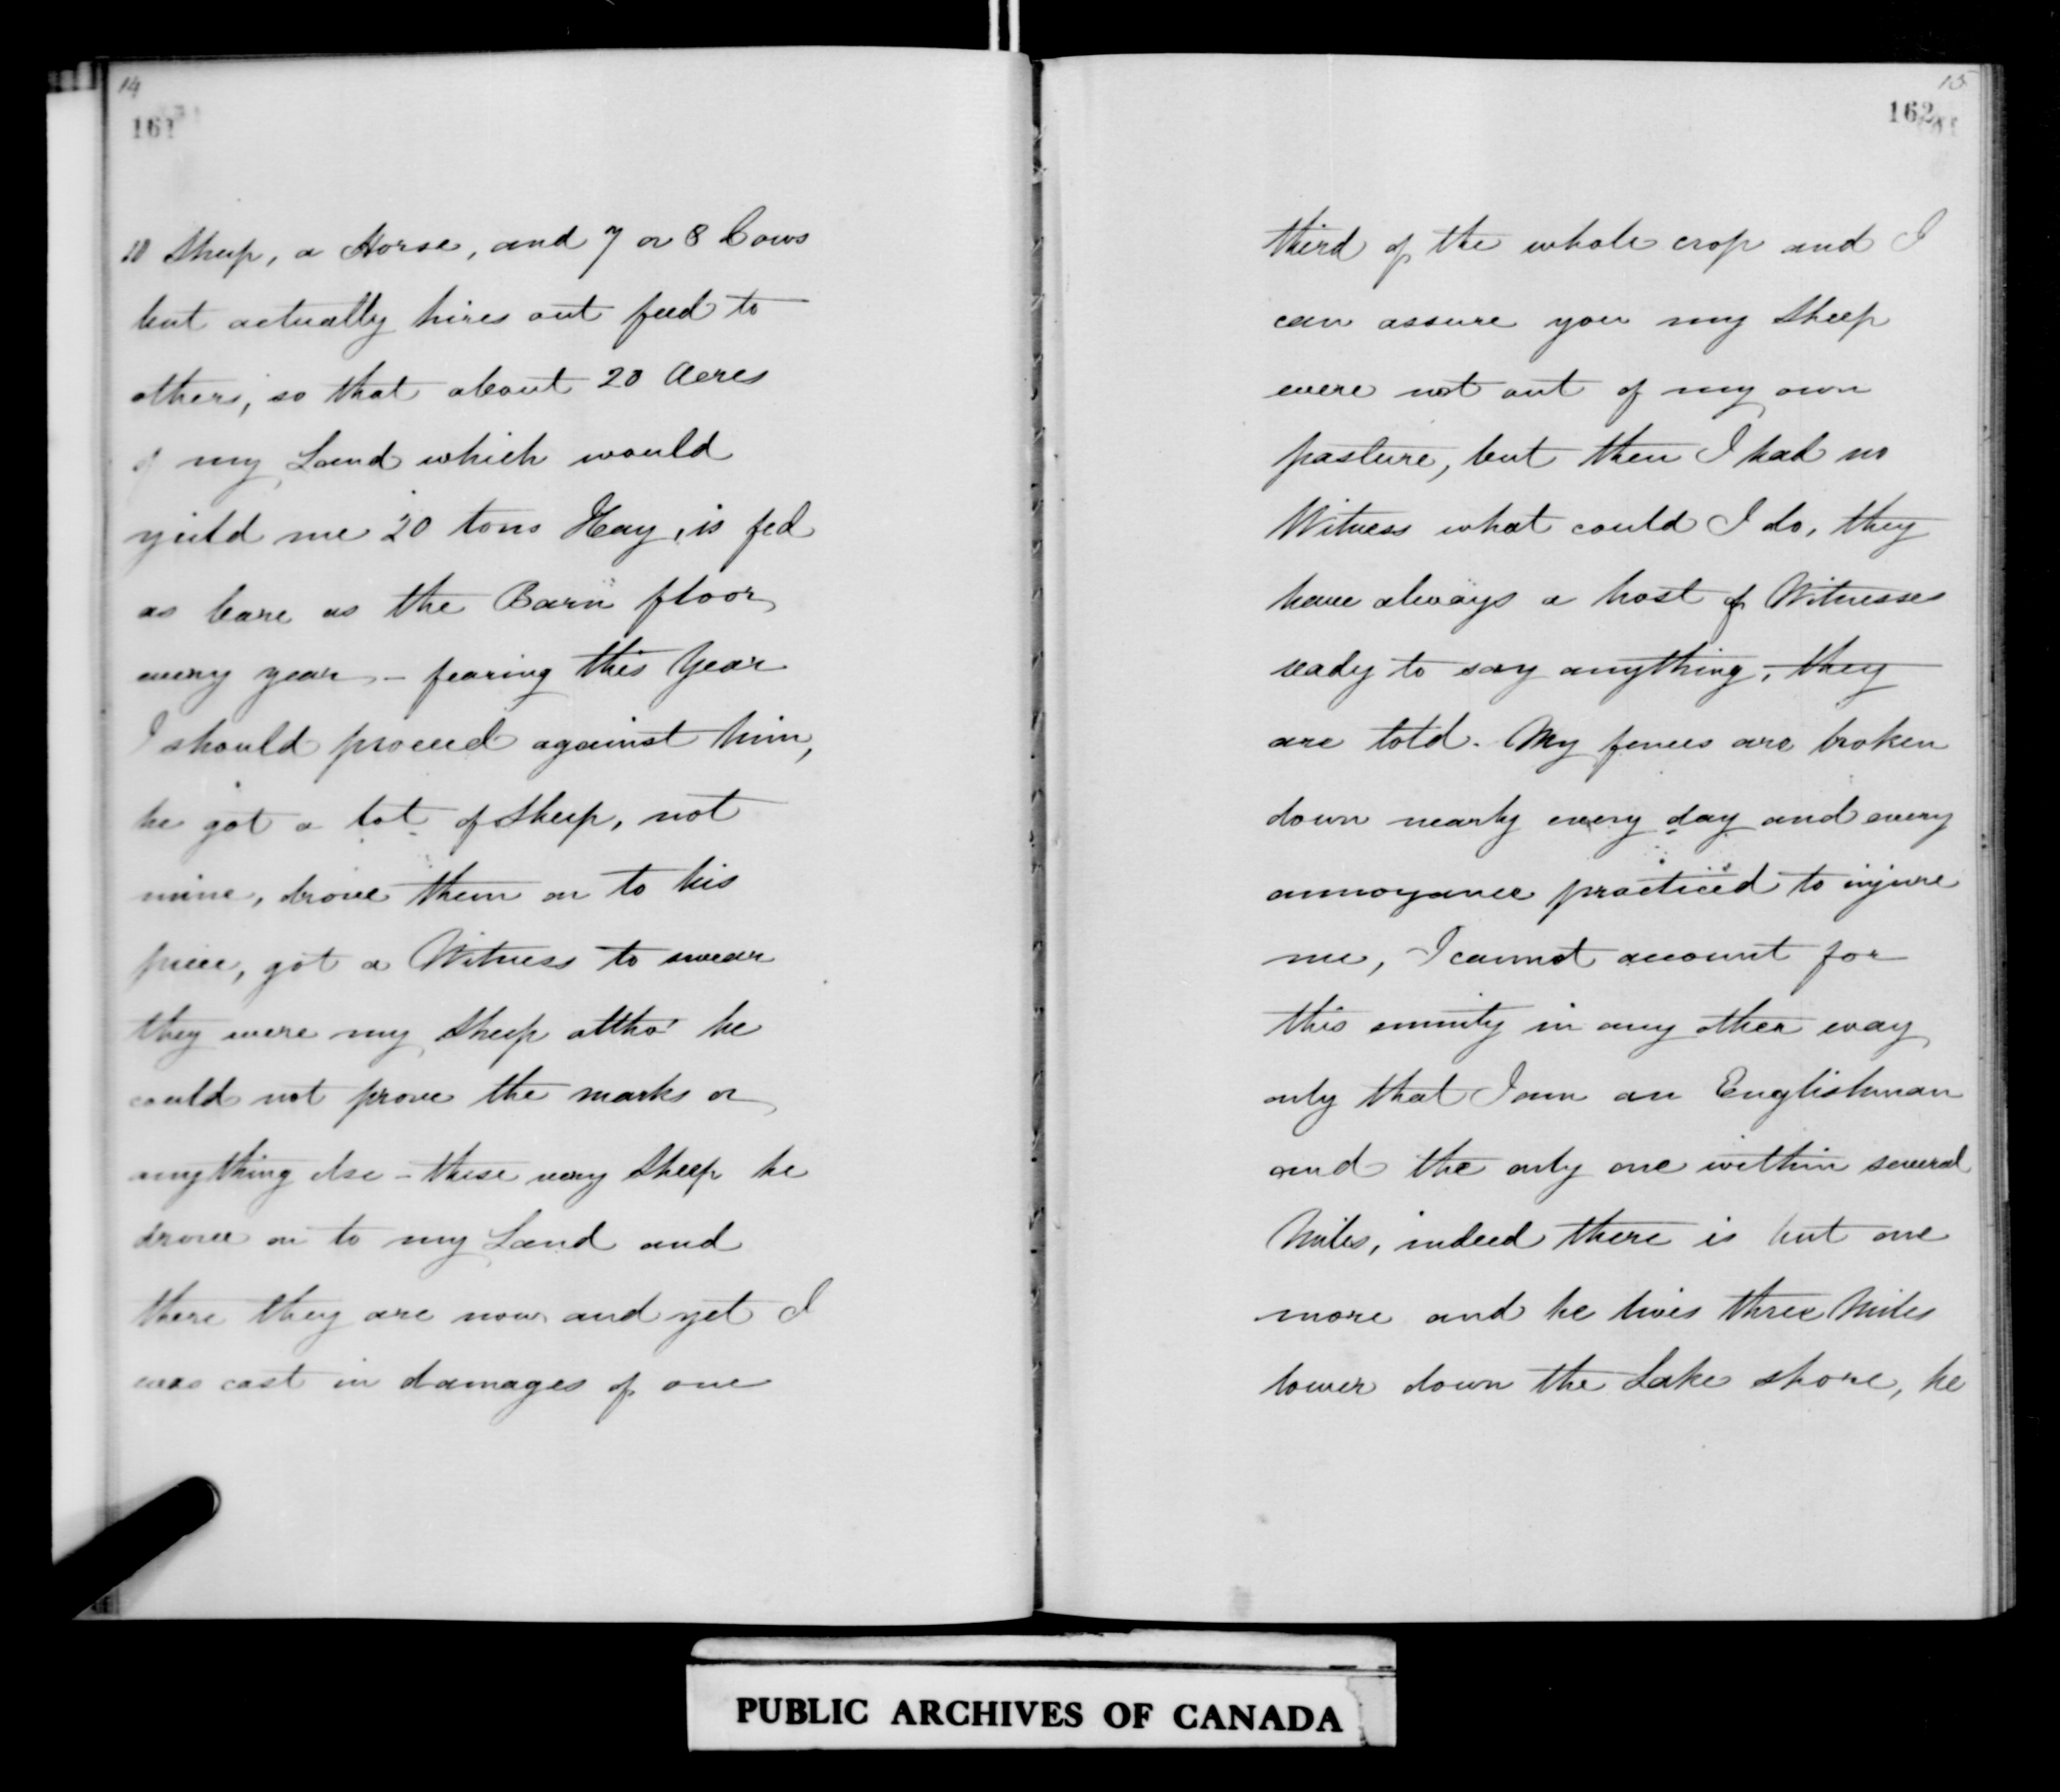 14
161
10 Sheep, a Horse, and 7 or 8 Cows
but actually hires out feed to
others, so that about 20 Acres
of my Land which would
yield me 20 tons Hay, is fed
as bare as the Barn floor
every year – fearing this Year
I should proceed against him,
he got a lot of Sheep, not
mine, drove them on to his
piece, got a Witness to swear
they were my Sheep altho' he
could not prove the marks or
anything else – these very Sheep he
drove on to my Land and
there they are now and yet I
was cast in damages of one
15
162
third of the whole crop and I
can assure you my Sheep
were not out of my own
pasture, but then I had no
Witness what could I do, they
have always a host of Witnesses
ready to say anything, they
are told. My fences are broken
down nearly every day and every
annoyance practiced to injure
me, I cannot account for
this enmity in any other way
only that I am an Englishman
and the only one within several
Miles, indeed there is but one
more and he lives three Miles
lower down the Lake shore, he
PUBLIC ARCHIVES OF CANADA